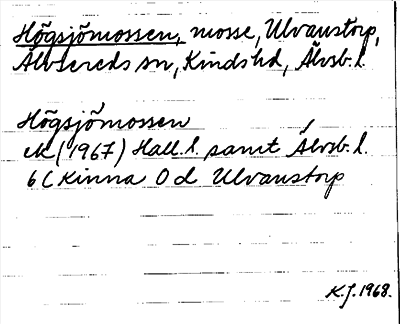 Högsjömossen, mosse, Ulvanstorp,
Älvsereds sn, Kinds hd, Älvsb. l.
Högsjömossen
ek (1967) Hall. l. samt Älvsb. l.
6 C Kinna 0 d Ulvanstorp
K.J. 1968.